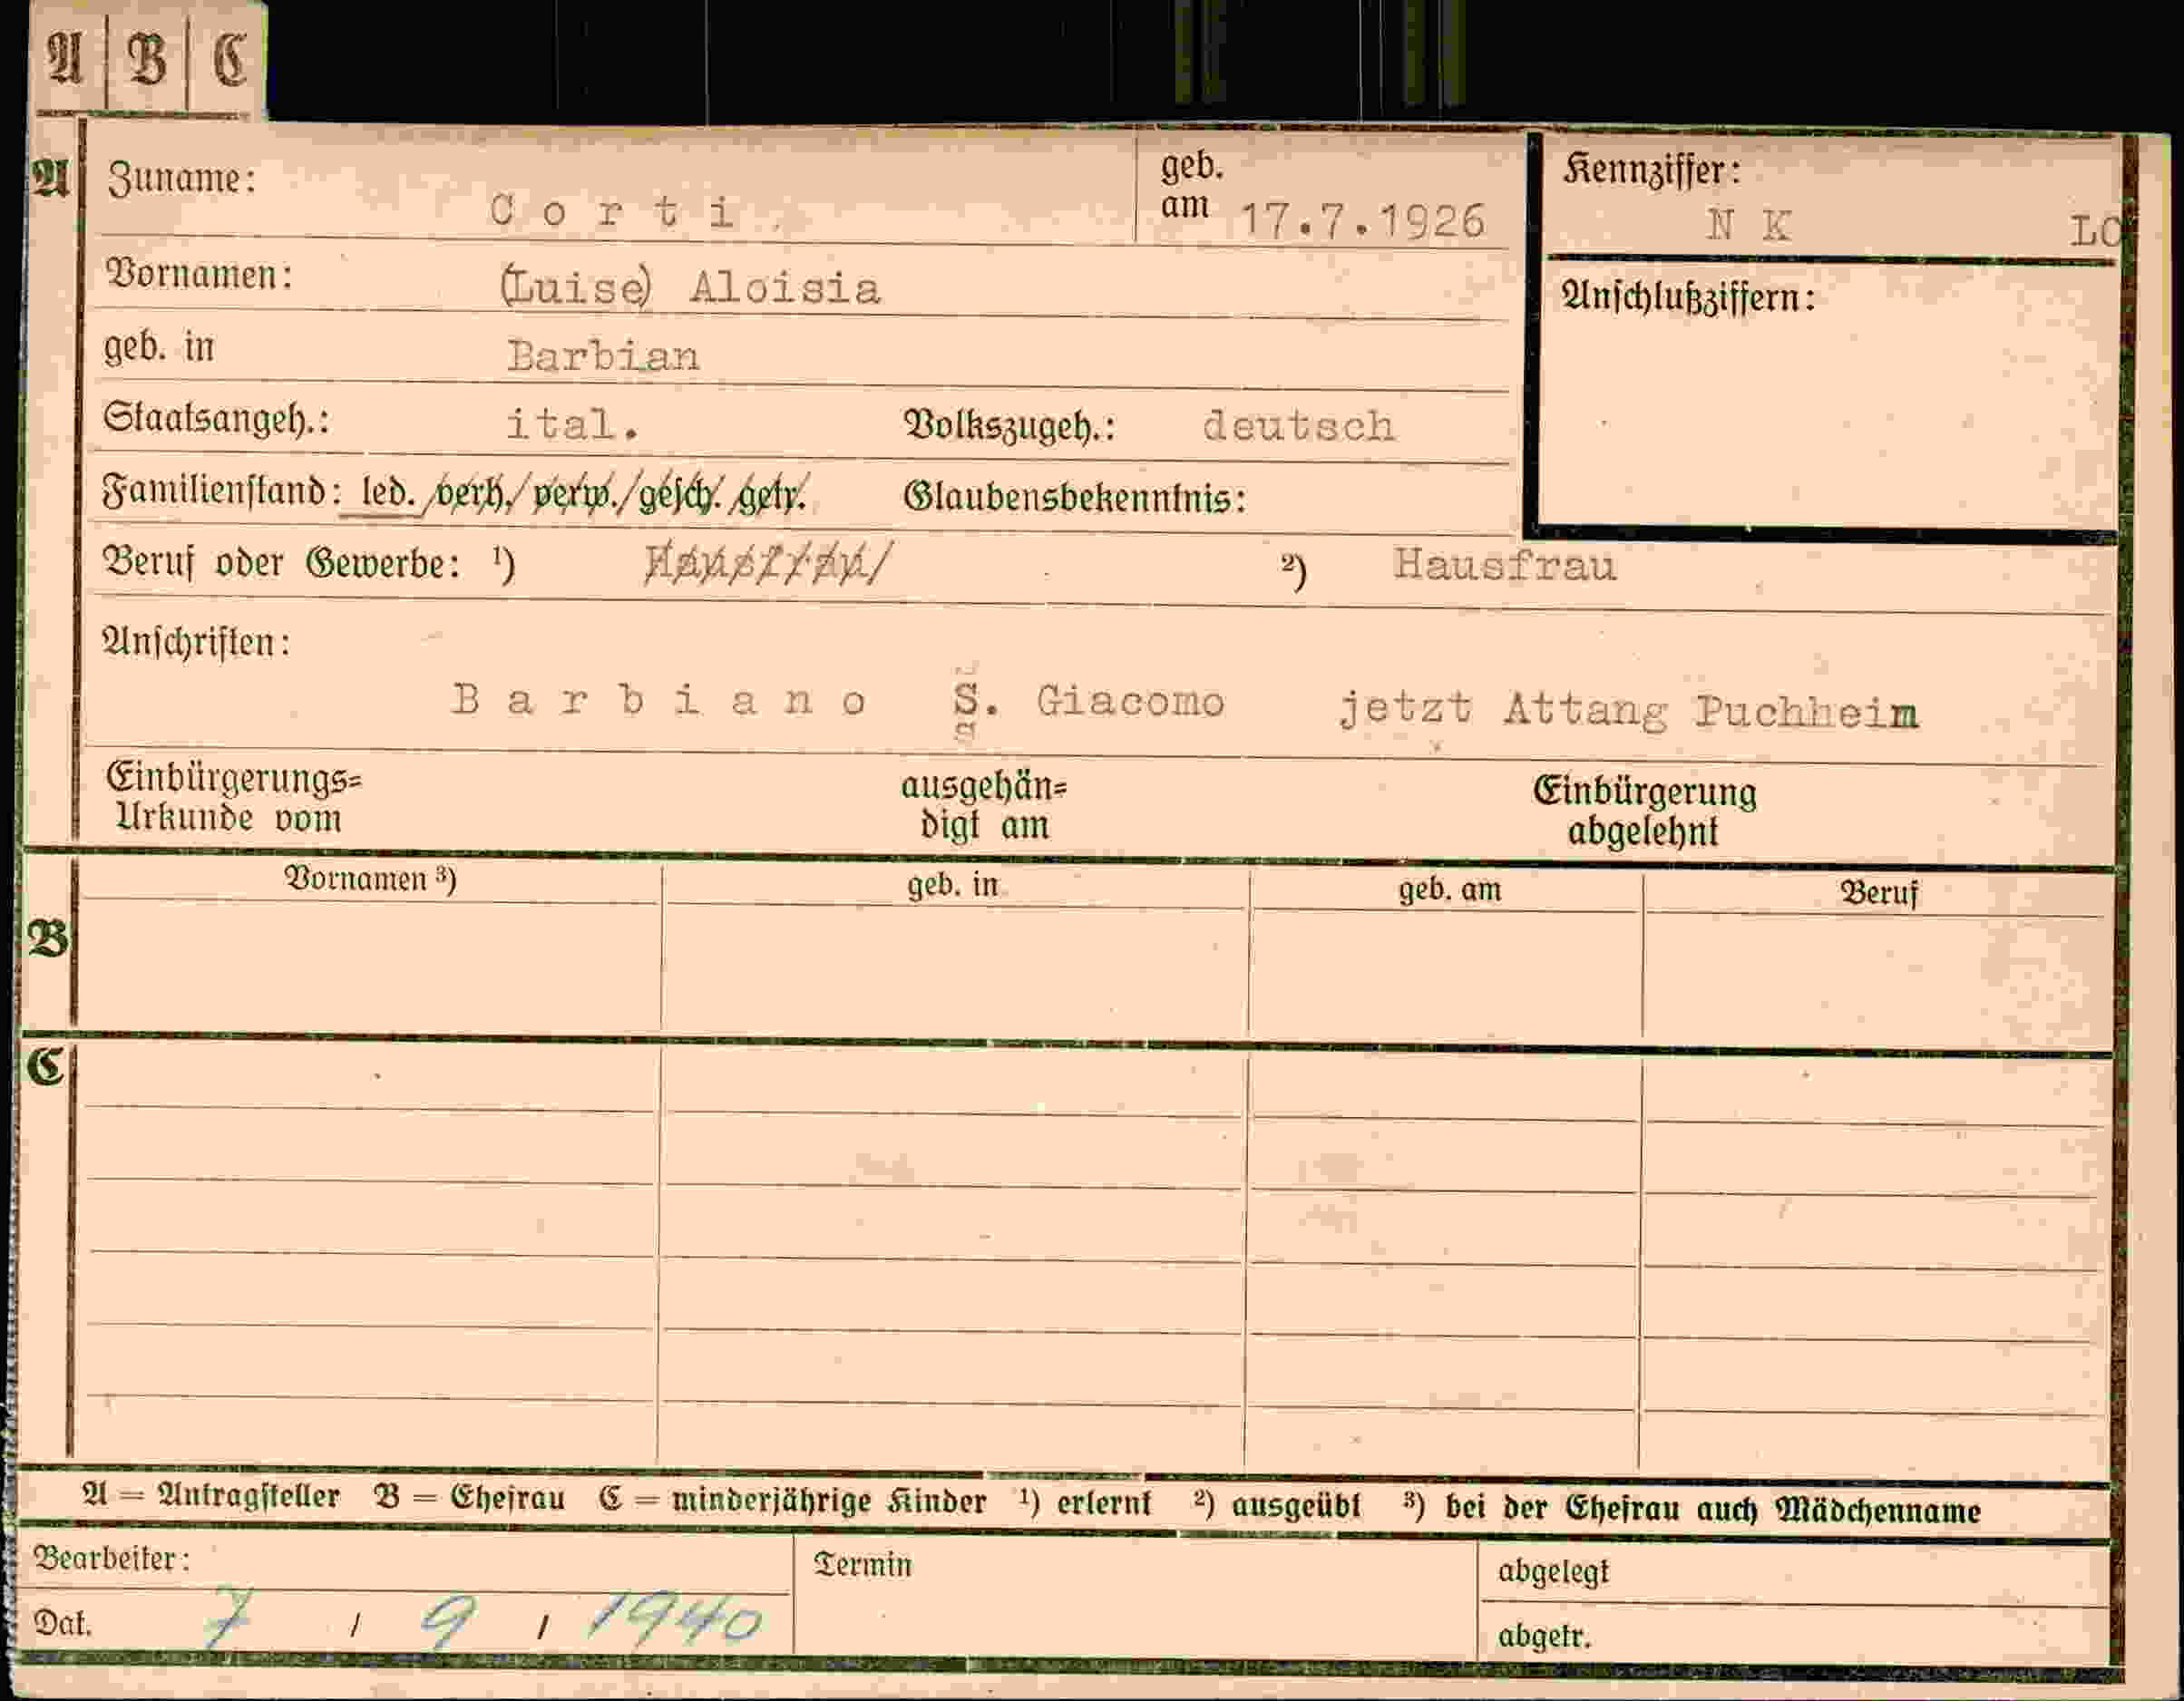 A | B | C
A
Zuname: Corti
geb. am 17.7.1926
Kennziffer: N K LO
Vornamen: (Luise) Aloisia
Anschlußziffern:
geb. in Barbian
Staatsangeh.: ital. Volkszugeh.: deutsch
Familienstand: led. /verh./ verw./gesch. /getr. Glaubensbekenntnis:
Beruf oder Gewerbe: ¹) Hausfrau/ ²) Hausfrau
Anschriften:
Barbiano S. Giacomo jetzt Attang Puchheim
Einbürgerungs= ausgehän= Einbürgerung
Urkunde vom digt am abgelehnt
B
Vornamen ³) geb. in geb. am Beruf
C
A = Antragsteller B = Ehefrau C = minderjährige Kinder ¹) erlernt ²) ausgeübt ³) bei der Ehefrau auch Mädchenname
Bearbeiter: Termin abgelegt
Dat. 7 / 9 / 1940 abgetr.